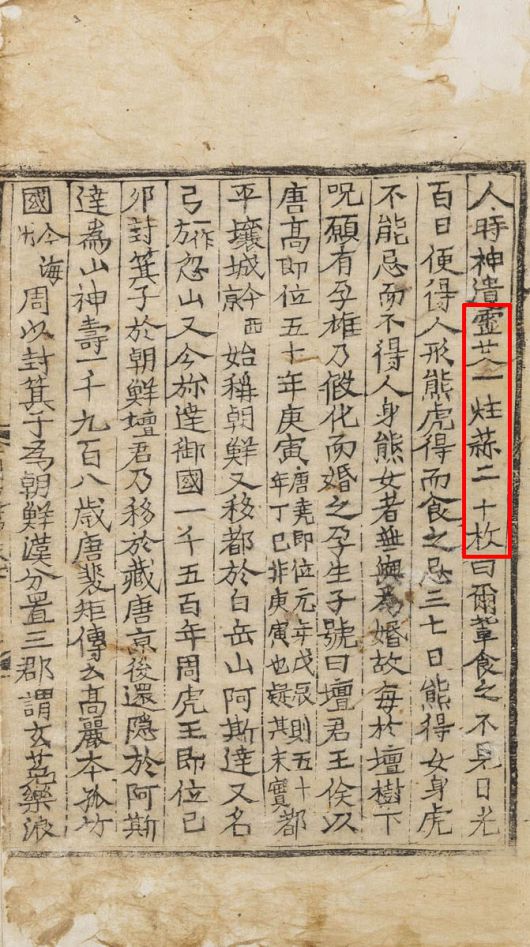 人時神遺靈艾一炷蒜二十枚曰爾軰食之不見日光
百日便得人形熊虎得而食之忌三七日熊得女身虎
不能忌而不得人身熊女者無與為婚故每於壇樹下
呪願有孕雄乃假化而婚之孕生子號曰壇君王倹以
唐髙即位五十年庚寅唐堯即位元年戊辰則五十年丁巳非庚寅也疑其未實都
平壤城今西京始稱朝鮮又移都於白岳山阿斯達又名
弓一作方忽山又今弥達御國一千五百年周虎王即位己
卯封箕子於朝鮮壇君乃移於藏唐京後還隱於阿斯
達為山神壽一千九百八歳唐裴矩傳云髙麗本孤竹
國今海州周以封箕子為朝鮮漢分置三郡謂玄菟樂浪